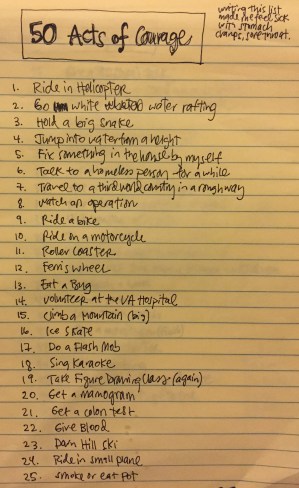 50 Acts of Courage
writing this list
made me feel sick
with stomach
cramps, sweatmost.
1. Ride in Helicopter
2. Go white water rafting
3. Hold a big snake
4. Jump into water from a height
5. Fix something in the house by myself
6. Talk to a homeless person for a while
7. Travel to a third world country in a rough way
8. Watch an operation
9. Ride a bike
10. Ride on a motorcycle
11. Roller Coaster
12. Ferris Wheel
13. Eat a Bug
14. Volunteer at the VA Hospital
15. Climb a Mountain (big)
16. Ice Skate
17. Do a Flash Mob
18. Sing Karaoke
19. Take Figure Drawing Class (again)
20. Get a mamogram
21. Get a colon test
22. Give Blood
23. Down Hill Ski
24. Ride in small plane
25. Smoke or eat Pot